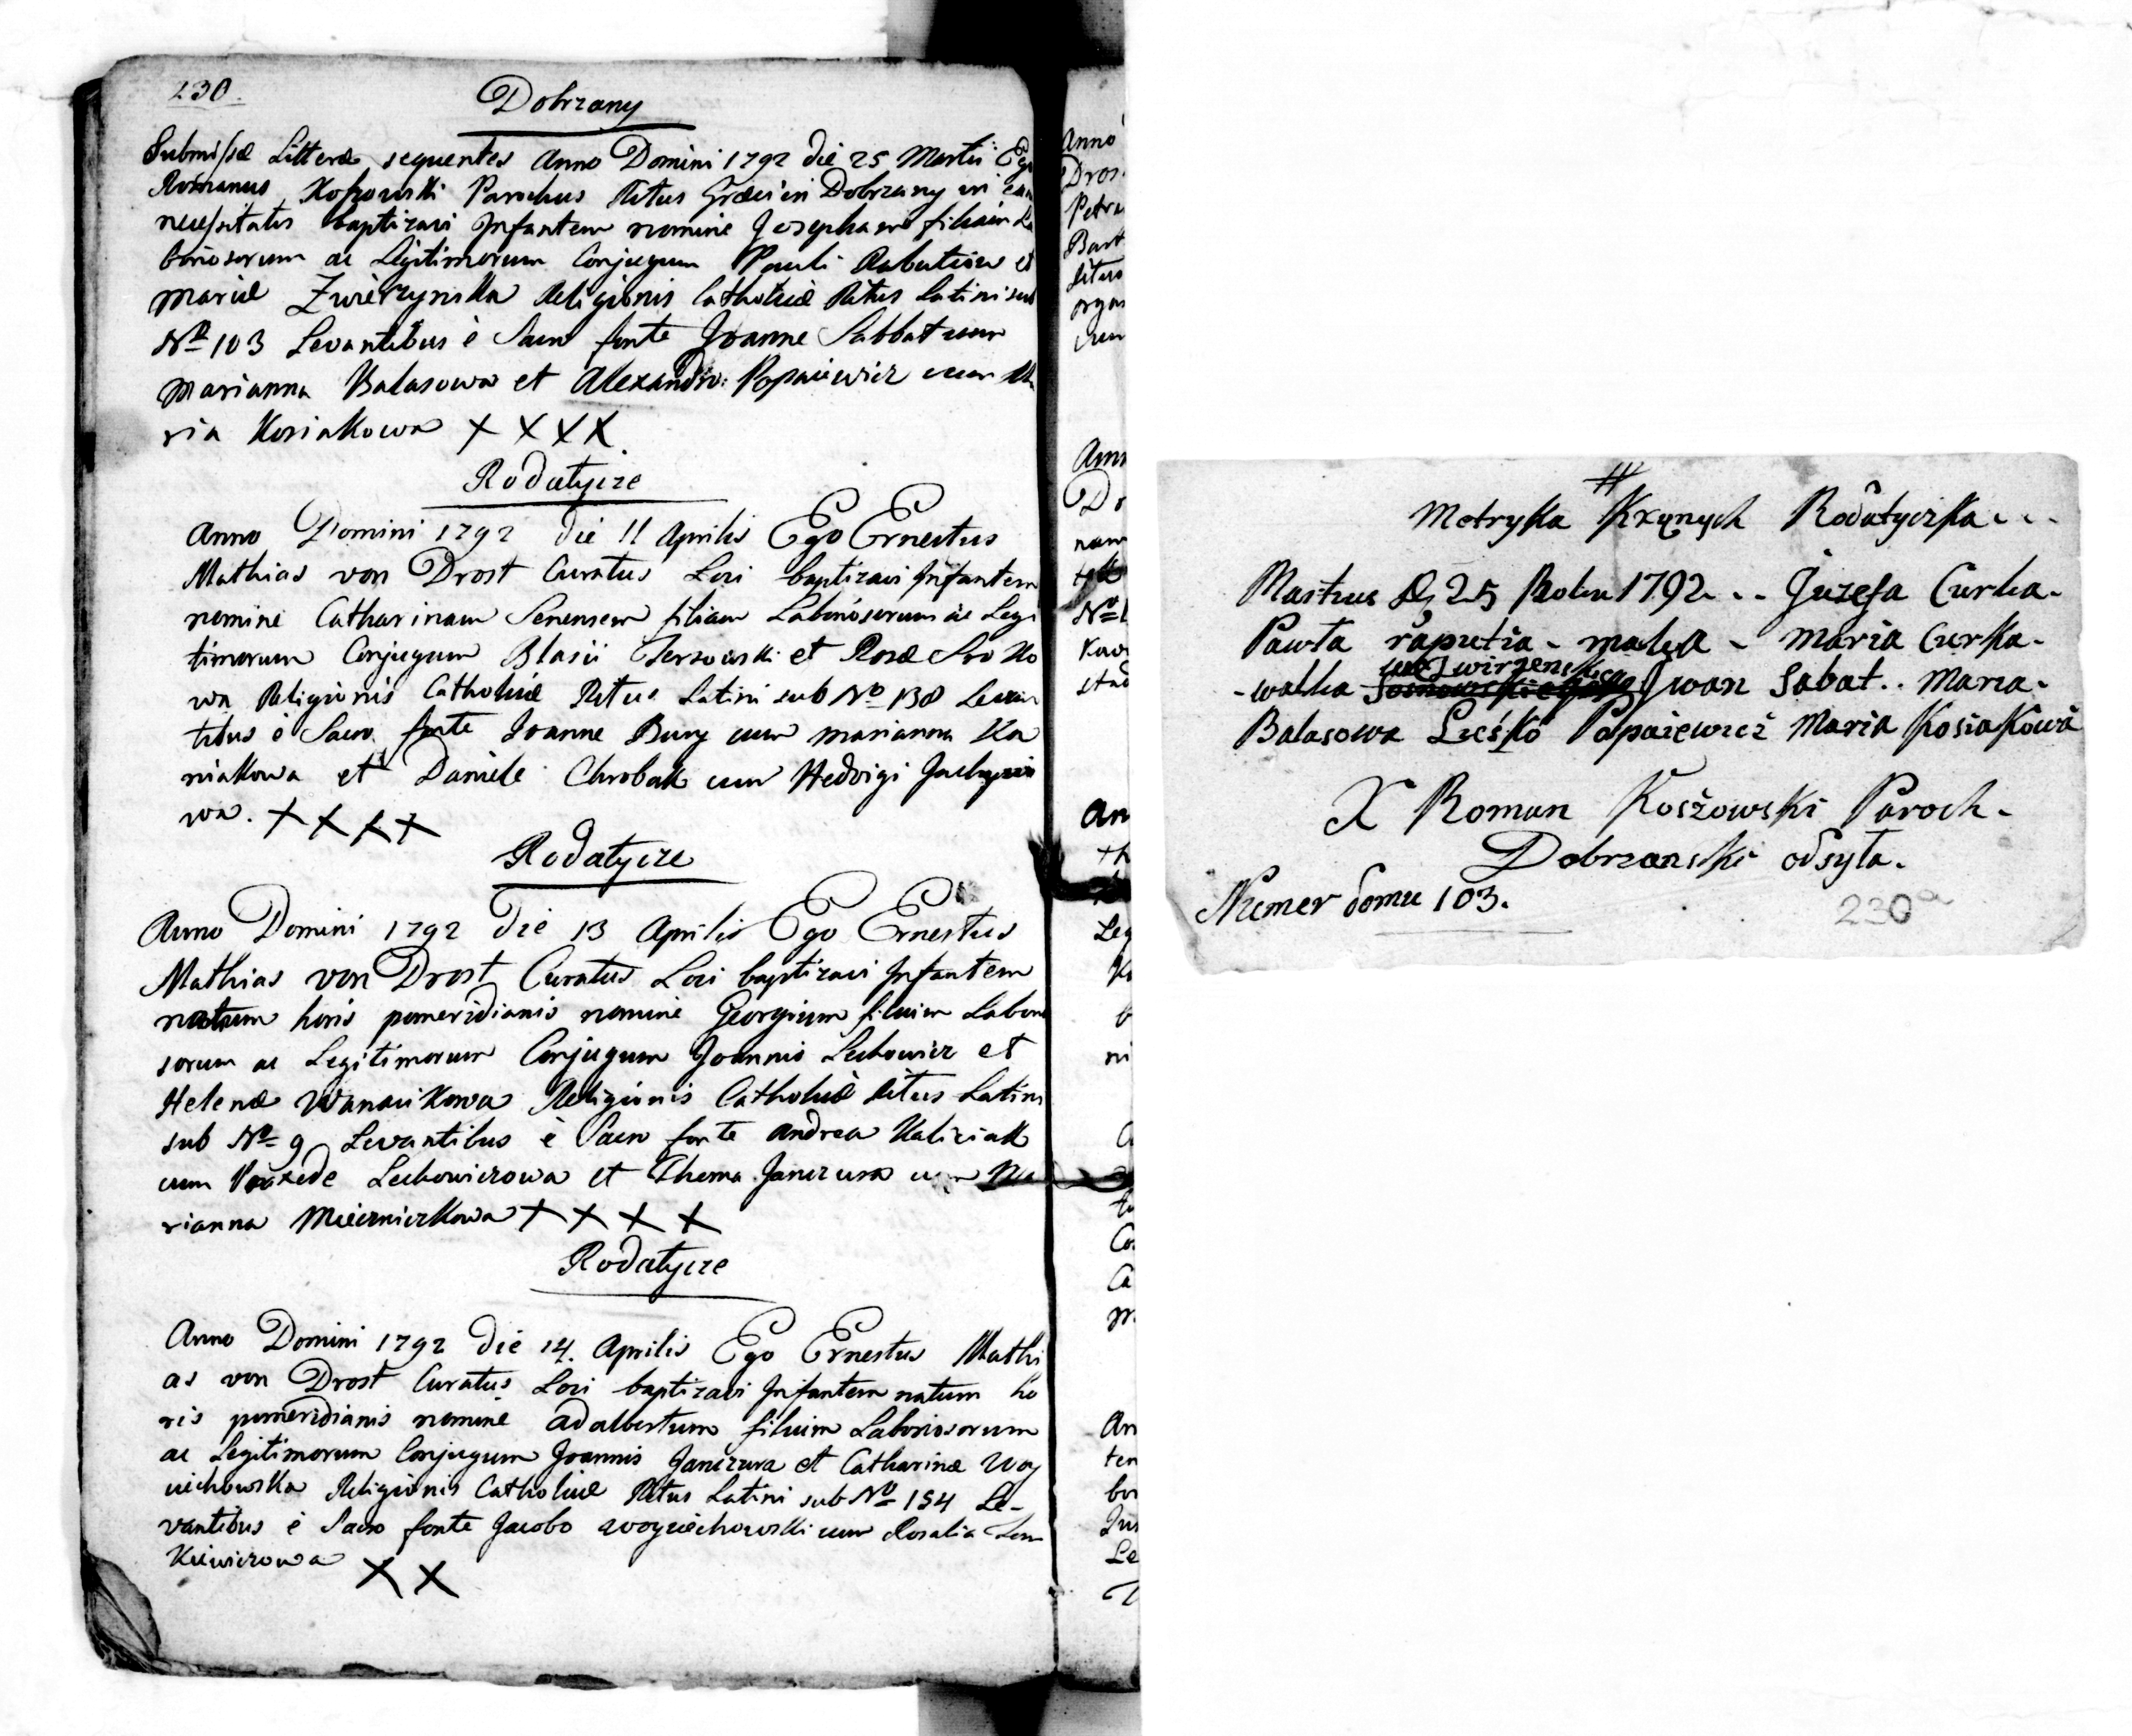 230.
Dobrzany
Submissæ Litteræ sequentes Anno Domini 1792 die 25 Martii Ego
Romanus Koszowski Parochus Ritus Græci in Dobrzany in
necessitatis baptizavi Infantem nomine Josepham filiam La
boriosorum ac Legitimorum Conjugum Pauli Raputiow et
Mariæ Zwierzynska Religionis Catholicæ Ritus Latini sub
Nº 103 Levantibus è Sacro fonte Joanne Sabbat cum
Marianna Balasowa et Alexandro Popaiewicz cum Ma
ria Kosiakowa X X X X
Rodatycze
Anno Domini 1792 die 11 Aprilis Ego Ernestus
Mathias von Drost Curatus Loci baptizavi Infantem
nomine Catharinam Senensem filiam Laboriosorum ac Legi
timorum Conjugum Blasii et Rosæ Sroko
wa Religionis Catholicæ Ritus Latini sub Nº 138 Levan
tibus è Sacro fonte Joanne Bury cum Marianna Ka
niakowa et Daniele Chrobak cum Hedvigi
wa. X X X X
Rodatycze
Anno Domini 1792 Die 13 Aprilis Ego Ernestus
Mathias von Drost Curatus Loci baptizavi Infantem
natum horis pomeridianis nomine Georgium filium Laborio
sorum ac Legitimorum Conjugum Joannis Lechowicz et
Helenæ Religionis Catholicæ Ritus Latini
sub Nº 9 Levantibus è Sacro fonte Andrea Kaliciak
cum Praxede Lechowiczowa et Thoma Janczura cum Ma
rianna Mierniczkowa X X X X
Rodatycze
Anno Domini 1792 Die 14. Aprilis Ego Ernestus Mathi
as von Drost Curatus Loci baptizavi Infantem natum ho
ris pomeridianis nomine Adalbertum filium Laboriosorum
ac Legitimorum Conjugum Joannis Janczura et Catharinæ Woy
ciechowska Religionis Catholicæ Ritus Latini sub Nº 154 Le-
vantibus è Sacro fonte Jacobo Woyciechowski cum Rosalia
X X
Anno
Petru
Metryka Rodatyczka...
25 Roku 1792... Juzefa Curka.
Pawła raputia - matka - Maria Curka.
-walka Zwirzenskiego Iwan Sabat.. Maria.
Balasowa Leśko Popaiewicz Maria Kosiakowa
X Roman Koszowski Paroch.
Dobrzanski odsyła.
Numer domu 103.
230a